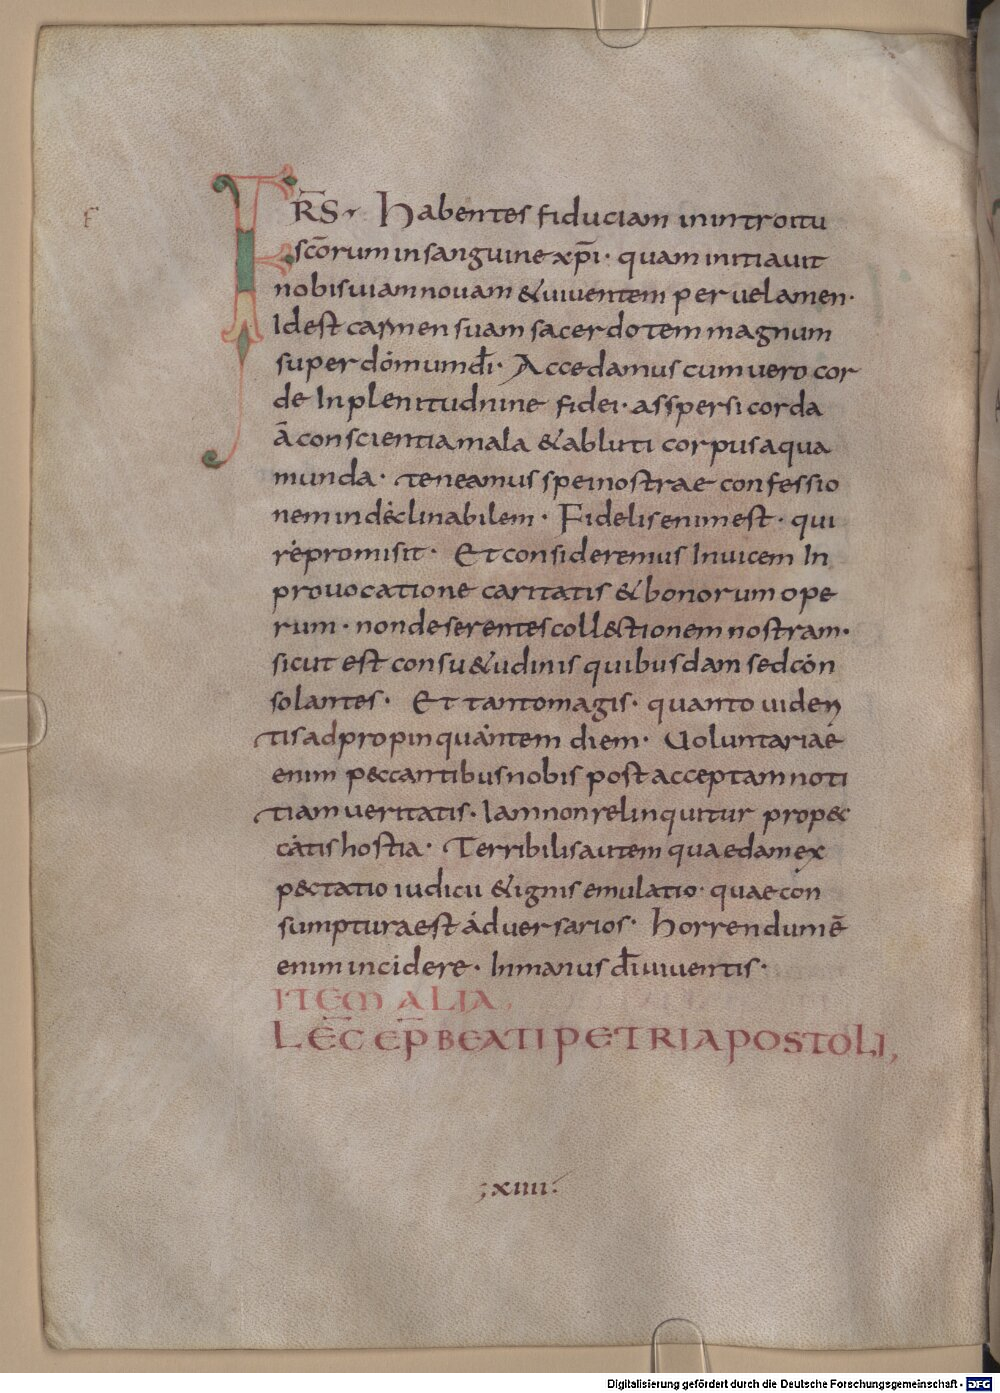 F
FR̄S· Habentes fiduciam in introitu
sc̄orum in sanguine xp̄i· quam initiauit
nobis uiam nouam &uiuentem per uelamen·
Id est carmen suam sacerdotem magnum
super domum dī· Accedamus cum uero cor
de In plenitudnine fidei· asspersi corda
ā conscientia mala &abluti corpus aqua
munda· teneamus spei nostrae confessio
nem indeclinabilem· Fidelis enim est· qui
repromisit· Et consideremus Inuicem In
prouocatione caritatis &bonorum ope
rum· non deserentes coll&ctionem nostram·
sicut est consu&udinis quibusdam sed con
solantes· Et tanto magis· quanto uiden
tis adpropinquantem diem· Uoluntariae
enim peccantibus nobis post acceptam noti
tiam ueritatis· Iam non relinquitur pro pec
catis hostia· Terribilis autem quaedam ex
p&ctatio iudicii &ignis emulatio· quae con
sumptura est aduersarios· horrendum ē
enim incidere· In manus dī uiuentis·
ITEM ALIA,
LEC̄ EP̄ BEATI PETRI APOSTOLI,
;xiiii:
Digitalisierung gefördert durch die Deutsche Forschungsgemeinschaft - DFG